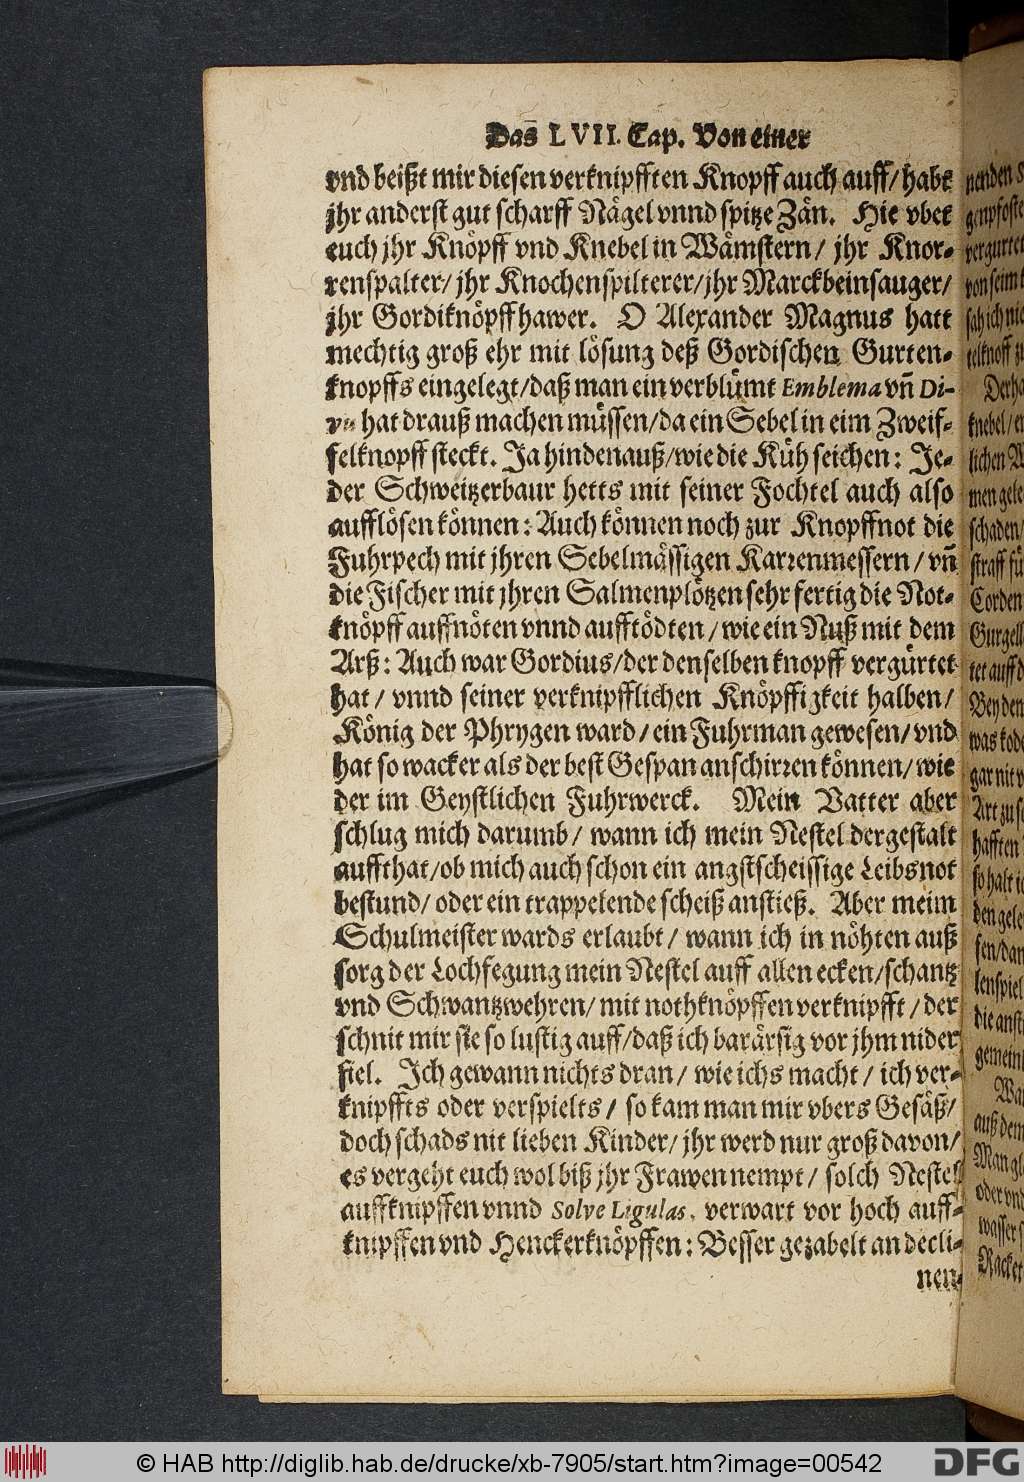 Das LVII. Cap. Von einer
vnd beißt mir diesen verknipfften Knopff auch auff/ habt
jhr anderst gut scharff Nägel vnnd spitze Zän. Hie vber
euch jhr Knöpff vnd Knebel in Wåmstern/ jhr Knor-
renspalter/ jhr Knochenspilterer/ jhr Marckbeinsauger/
jhr Gordiknöpffhawer. O Alexander Magnus hatt
mechtig groß ehr mit lösung deß Gordischen Gurten-
knopffs eingelegt/ daß man ein verblümt Emblema vñ Di-
hat drauß machen müssen/ da ein Sebel in eim Zweif-
felknopff steckt. Ja hindenauß/ wie die Küh seichen: Je-
der Schweitzerbaur hetts mit seiner Fochtel auch also
aufflösen können: Auch können noch zur Knopffnot die
Fuhrpech mit jhren Sebelmässigen Karrenmessern/ vñ
die Fischer mit jhren Salmenplötzen sehr fertig die Not-
knöpff auffnöten vnnd aufftödten/ wie ein Nuß mit dem
Arß: Auch war Gordius/ der denselben knopff vergürtet
hat/ vnnd seiner verknipfflichen Knöpffigkeit halben/
König der Phrygen ward/ ein Fuhrman gewesen/ vnd
hat so wacker als der best Gespan anschirren können/ wie
der im Geystlichen Fuhrwerck. Mein Vatter aber
schlug mich darumb/ wann ich mein Nestel dergestalt
auffthat/ ob mich auch schon ein angstscheissige Leibsnot
bestund/ oder ein trappelende scheiß anstieß. Aber meim
Schulmeister wards erlaubt/ wann ich in nöhten auß
sorg der Lochfegung mein Nestel auff allen ecken/ schantz
vnd Schwantzwehren/ mit nothknöpffen verknipfft/ der
schnit mir sie so lustig auff/ daß ich barärsig vor jhm nider
fiel. Ich gewann nichts dran/ wie ichs macht/ ich ver-
knipffts oder verspielts/ so kam man mir vbers Gesäß/
doch schads nit lieben Kinder/ jhr werd nur groß davon/
es vergeht euch wol biß jhr Frawen nempt/ solch Nestel
auffknipffen vnnd Solve Ligulas, verwart vor hoch auff-
knipffen vnd Henckerknöpffen: Besser gezabelt an decli-
nen-
© HAB http://diglib.hab.de/drucke/xb-7905/start.htm?image=00542
DFG